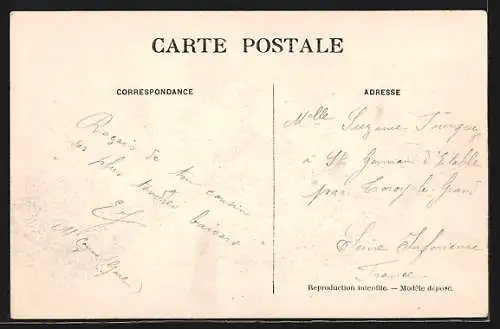 CARTE POSTALE
CORRESPONDANCE
ADRESSE
Reçois de ton cousin
les plus tendres baisers
Melle Suzanne
à St Germain d'Etables
par Torcy-le-Grand
Seine Inférieure
France
Reproduction interdite. — Modèle déposé.